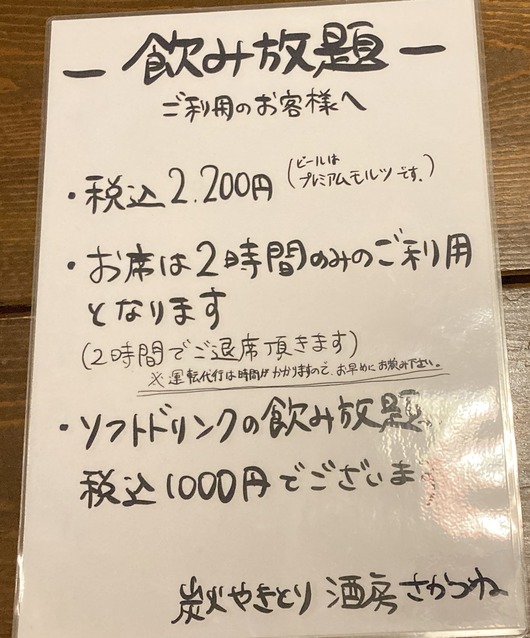 ー飲み放題ー
ご利用のお客様へ
・税込2.200円(ビールはプレミアムモルツです。)
・お席は2時間のみのご利用
となります
(2時間でご退席頂きます)
※運転代行は時間がかかりますので、お早めにお飲み下さい。
・ソフトドリンクの飲み放題
税込1000円でございます
炭火やきとり 酒房さかつね